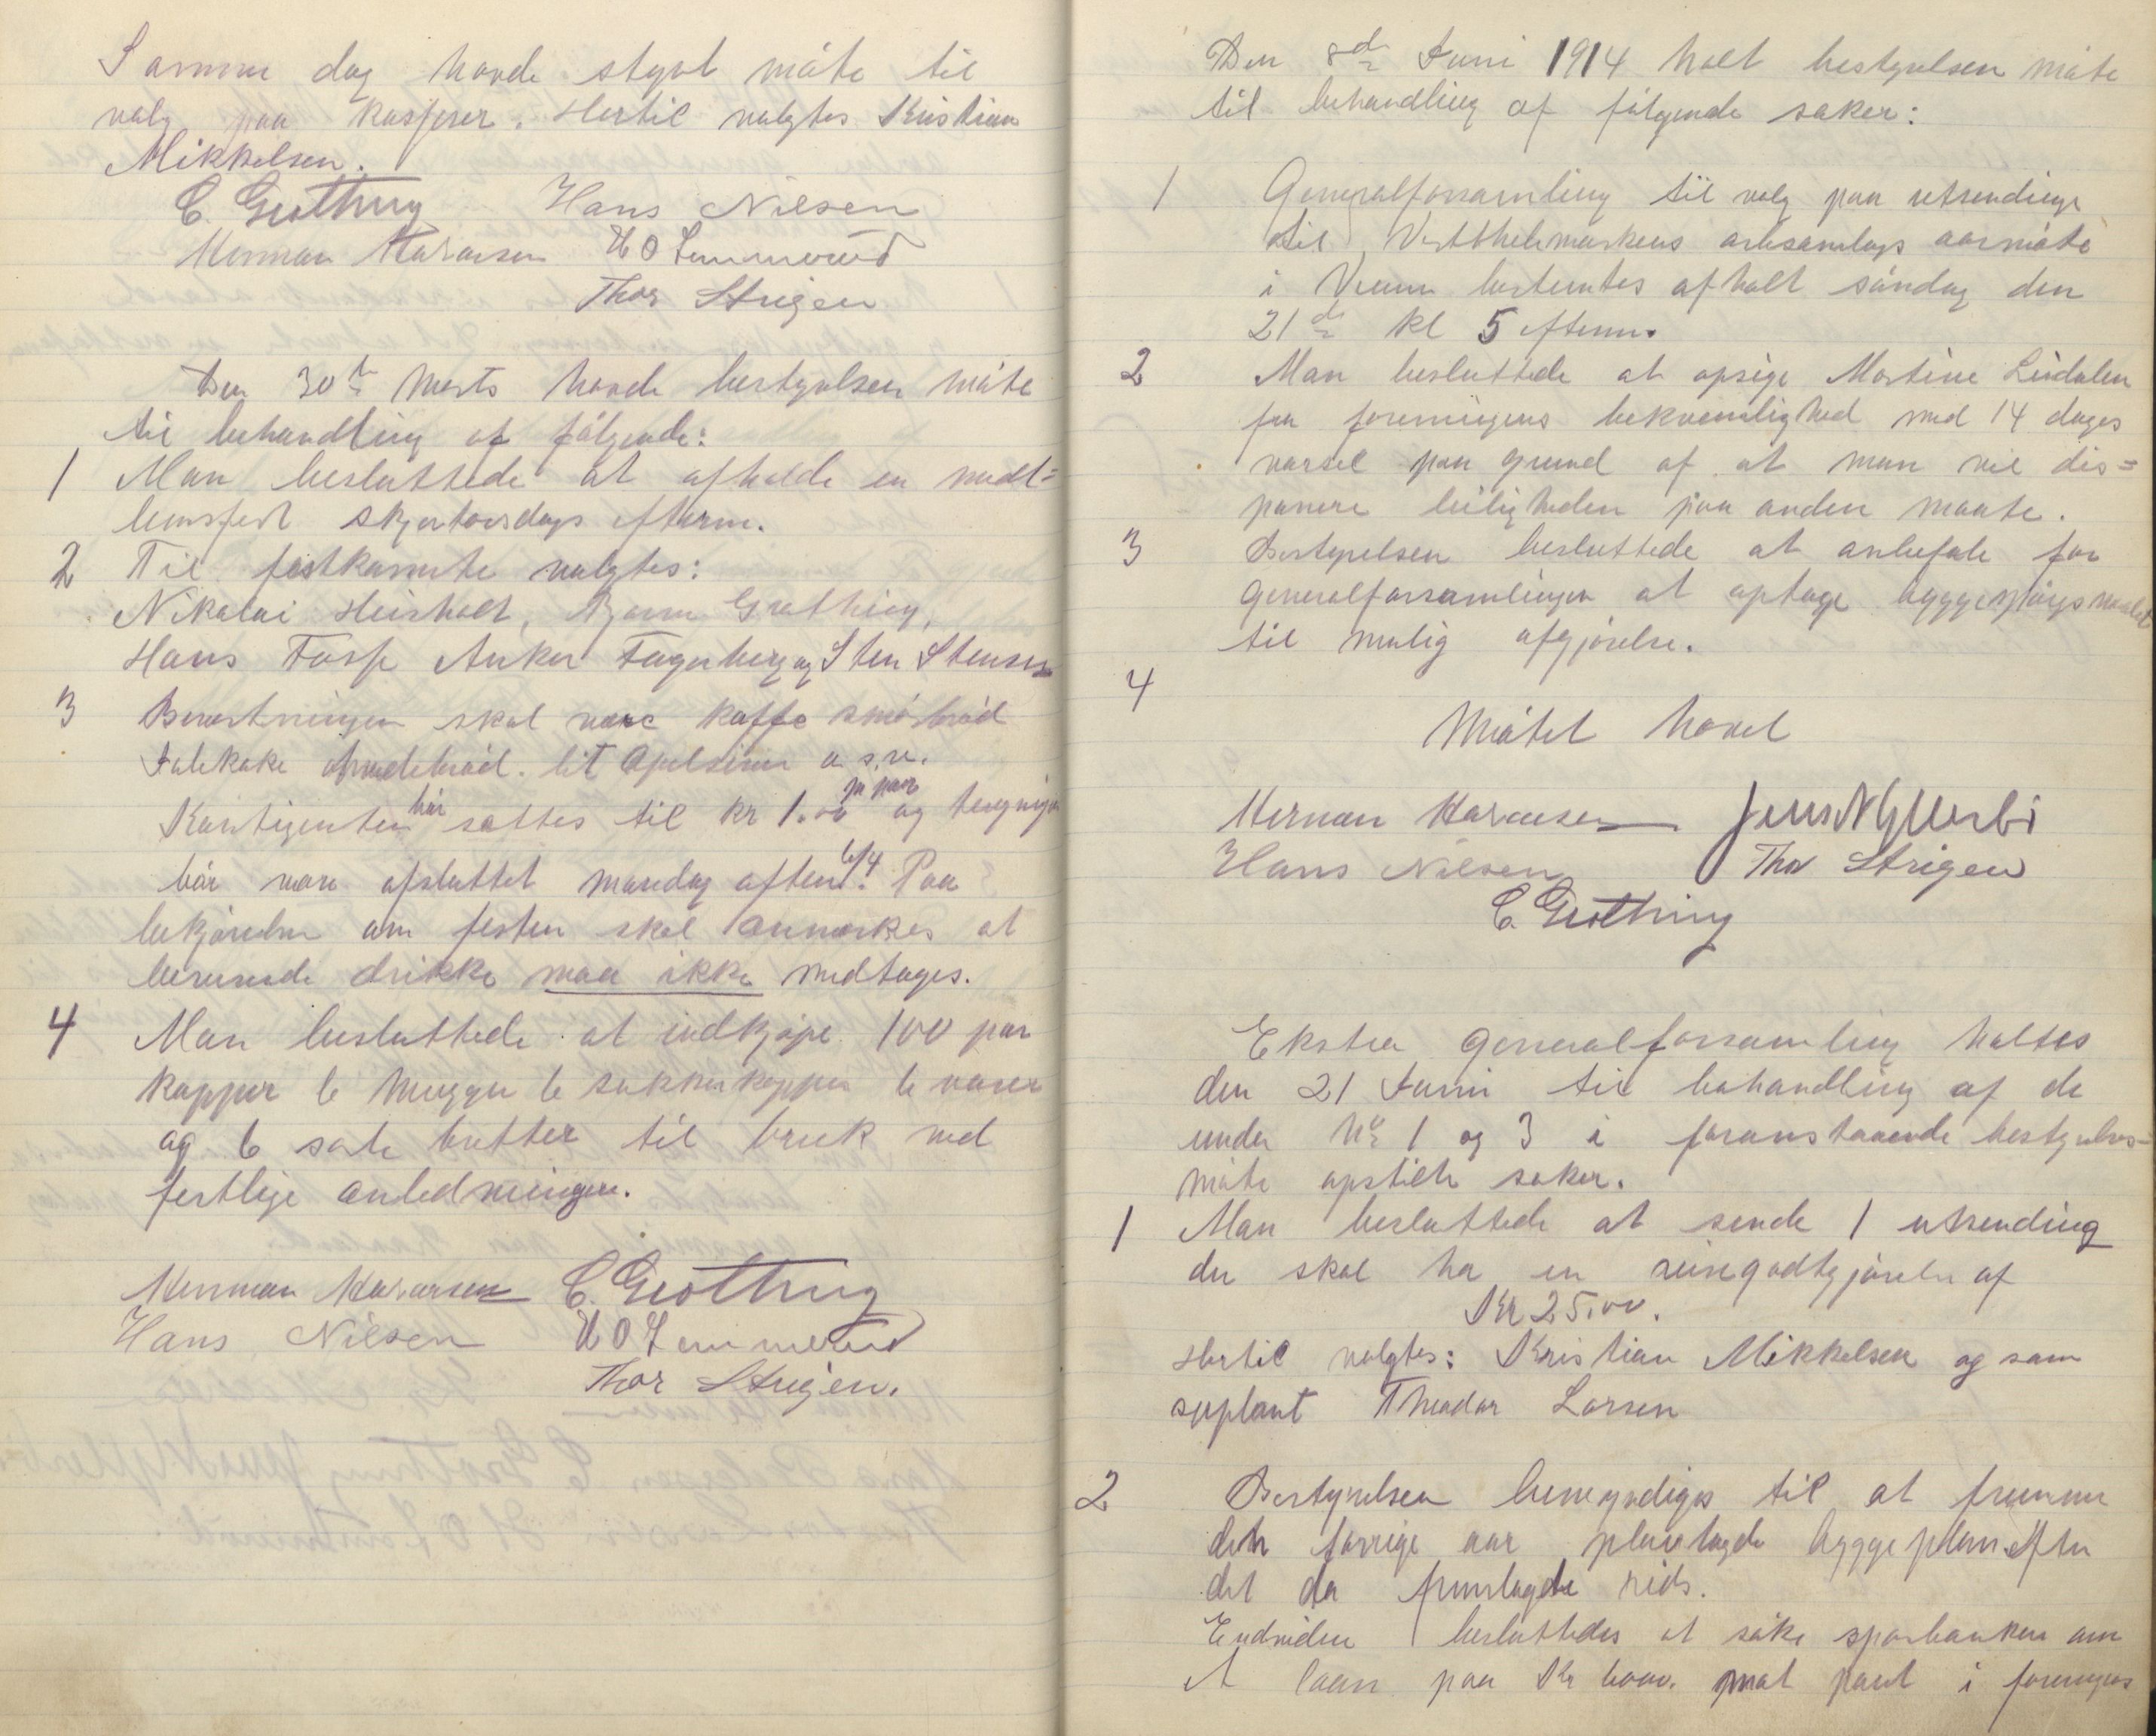 Samme dag havde styret möte til
valg paa kasserer. Hertil valgtes Kristian
Mikkelsen.
C. Grøthing Hans Nilsen
Herman Halvorsen H O Lemmerud
Thor Strigen
Den 30te Marts havde bestyrelsen möte
til behandling af följende:
1 Man besluttede at afholde en medl=
lemsfest skjertorsdags efterm.
2 Til festkomite valgtes:
Nikolai Heisholt, Bjarne Grøthing,
Hans Foss Anker Fagerberg og Sten Stensen
3 Bevertningen skal være kaffe smörbröd
Julekake hvedebröd. lit Apelsiner o. s. v.
Kontigenten bör sættes til kr 1.00 pr par og tegningen
bör være afsluttet mandag aften 6/4. Paa
bekjörelse om festen skal anmerkes at
berusende drikke maa ikke medtages.
4 Man besluttede at indkjöpe 100 par
kopper 6 mugger 6 sukkerkopper 6 vaser
og 6 sorte butter til bruk ved
festlige anledninger.
Herman Halvorsen C. Grøthing
Hans Nilsen H O Lemmerud
Thor Strigen.
Den 8de Juni 1914 holt bestyrelsen möte
til behandling af fölgende saker:
1 Generalforsamling til valg paa utsendinge
til Vestthelemarkens arbsamlags aarmöte
i Vraan bestemtes afholt söndag den
21de kl 5 efterm.
2 Man besluttede at opsige Martine Lindalen
fra foreningens bekvemlighed med 14 dages
varsel paa grund af at man vil dis=
ponere leiligheden paa anden maate.
3 Bestyrelsen besluttede at anbefale for
Generalforsamlingen at optage byggespörgsmaalet
til mulig afgjörelse.
4
Mötet hævet
Herman Halvorsen Jens N Gllerbi
Hans Nilsen Thor Strigen
C. Grøthing
Ekstra generalforsamling holtes
den 21 Juni til behandling af de
under No 1 og 3 i foranstaaende bestyrelses-
möte opstilte saker.
1 Man besluttede at sende 1 utsending
der skal ha en reisegodtgjörelse af
Kr 25.00.
Hertil valgtes: Kristian Mikkelsen og som
suplant Theodor Larsen
2 Bestyrelsen bemyndiges til at fremme
den forrige aar planlagde byggeplan efter
det da fremlagte rids.
Endvidere besluttedes at söke sparbanken om
et laan paa Kr 6000. mot pant i foreningens